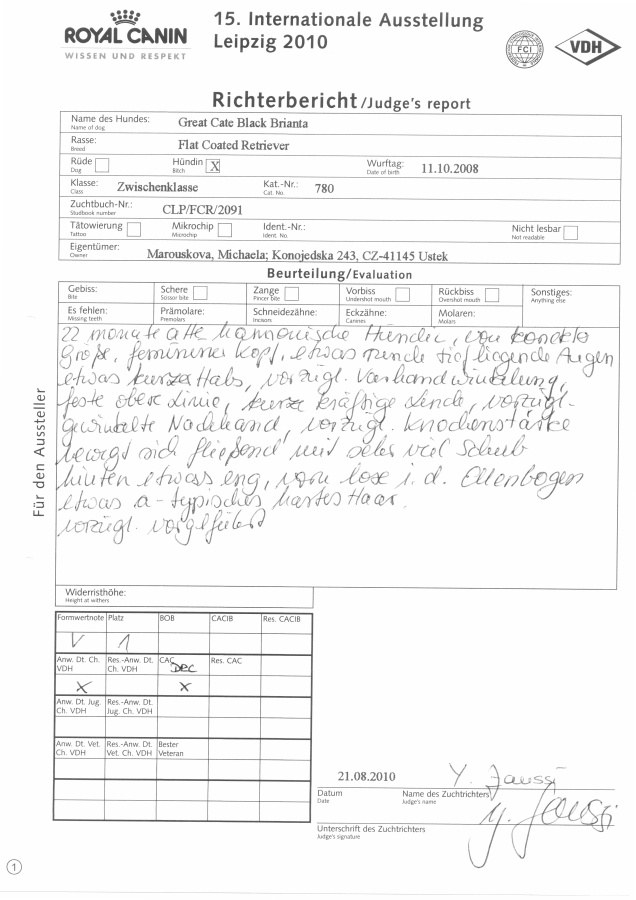 ROYAL CANIN
WISSEN UND RESPEKT
15. Internationale Ausstellung
Leipzig 2010
FCI
VDH
Richterbericht/Judge's report
Name des Hundes: Great Cate Black Brianta
Name of dog
Rasse: Flat Coated Retriever
Breed
Rüde Hündin X Wurftag: 11.10.2008
Dog Bitch Date of birth
Klasse: Zwischenklasse Kat.-Nr.: 780
Class Cat. No.
Zuchtbuch-Nr.: CLP/FCR/2091
Studbook number
Tätowierung Mikrochip Ident.-Nr.: Nicht lesbar
Tattoo Microchip Ident. No. Not readable
Eigentümer: Marouskova, Michaela; Konojedska 243, CZ-41145 Ustek
Owner
Beurteilung/Evaluation
Gebiss: Schere Zange Vorbiss Rückbiss Sonstiges:
Bite Scissor bite Pincer bite Undershot mouth Overshot mouth Anything else
Es fehlen: Prämolare: Schneidezähne: Eckzähne: Molaren:
Missing teeth Premolars Incisors Canines Molars
Für den Aussteller
22 monate alte harmonische Hündin, von
Größe, femininer Kopf, etwas runde tiefliegende Augen
etwas kurzer Hals, vorzügl. Vorhandwinkelung,
feste obere Linie, kurze kräftige Lende, vorzügl.
gewinkelte Nachhand, vorzügl. Knochenstärke
bewegt sich fließend mit sehr viel Schub
hinten etwass eng, vorn lose i. d. Ellenbogen
etwas a-typisches hartes Haar.
vorzügl. vorgeführt
Widerristhöhe:
Height at withers
Formwertnote Platz BOB CACIB Res. CACIB
V 1
Anw. Dt. Ch. VDH Res.-Anw. Dt. Ch. VDH CAC DRC Res. CAC
X X
Anw. Dt. Jug. Ch. VDH Res.-Anw. Dt. Jug. Ch. VDH
Anw. Dt. Vet. Ch. VDH Res.-Anw. Dt. Vet. Ch. VDH Bester Veteran
21.08.2010 Y. Jaussi
Datum Name des Zuchtrichters
Date Judge's name
Y. Jaussi
Unterschrift des Zuchtrichters
Judge's signature
1